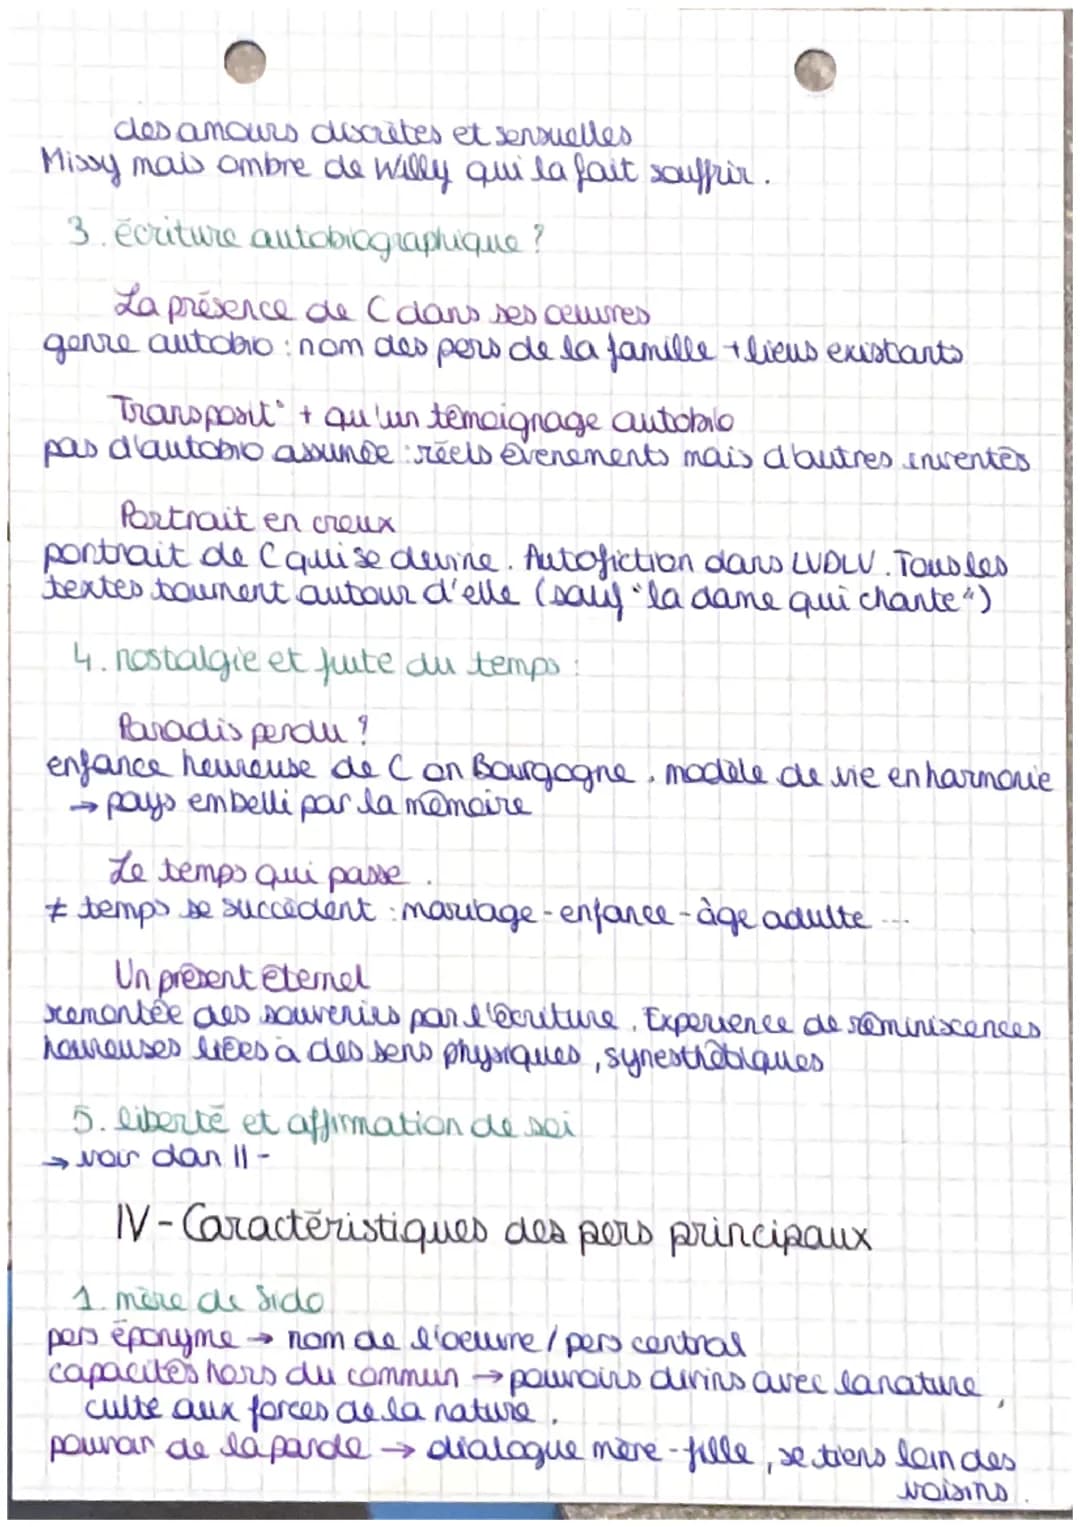 des amours discrètes et sensuelles
Missy mais ombre de Willy qui la fait souffrir.
3. écriture autobiographique ?
La présence de C dans ses œuvres
genre autobio : nom des pers de la famille + lieus existants
Transposit° + qu'un témoignage autobio
pas d'autobio assumée : réels évenements mais d'autres inventés
Portrait en creux
portrait de C qui se devine. Autofiction dans LVDLV. Tous les
textes tournent autour d'elle (sauf "la dame qui chante")
4. nostalgie et fuite du temps :
Paradis perdu ?
enfance heureuse de C en Bourgogne. modèle de vie en harmonie
→ pays embelli par la mémoire
Le temps qui passe.
≠ temps se succèdent : mariage - enfance - âge adulte ...
Un présent éternel
remontée des souvenirs par l'écriture. Expérience de réminiscences
heureuses liées à des sens physiques, synesthétiques
5. liberté et affirmation de soi
→ voir dan II -
IV - Caractéristiques des pers principaux
1. mère de Sido
pers éponyme → nom de l'oeuvre / pers central
capacités hors du commun → pouvoirs divins avec la nature,
culte aux forces de la nature.
pouvoir de la parole → dialogue mère - fille, se tiens loin des
voisins.